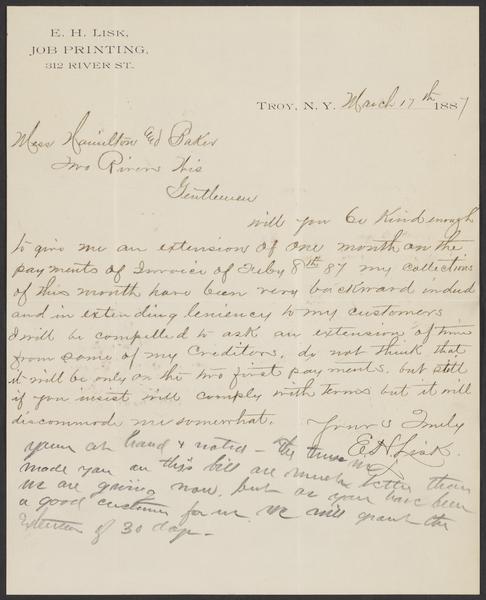 E. H. LISK,
JOB PRINTING,
312 RIVER ST.
TROY, N. Y. March 17th 1887
Mess Hamilton and Baker
Two Rivers Wis
Gentlemen
will you be kind enough
to give me an extension of one month on the
payments of Invoice of Feby 8th 87 my collections
of this month have been very backward indeed
and in extending leniency to my customers
I will be compelled to ask an extension of time
from some of my creditors. do not think that
it will be only on the two first payments. but still
if you insist will comply with terms but it will
discommode me somewhat.
Yours Truly
E. H. Lisk.
yours at hand & noted - The terms we
made you on this bill are much better than
we are giving now. but as you have been
a good customer for us we will grant the
Extention of 30 days -